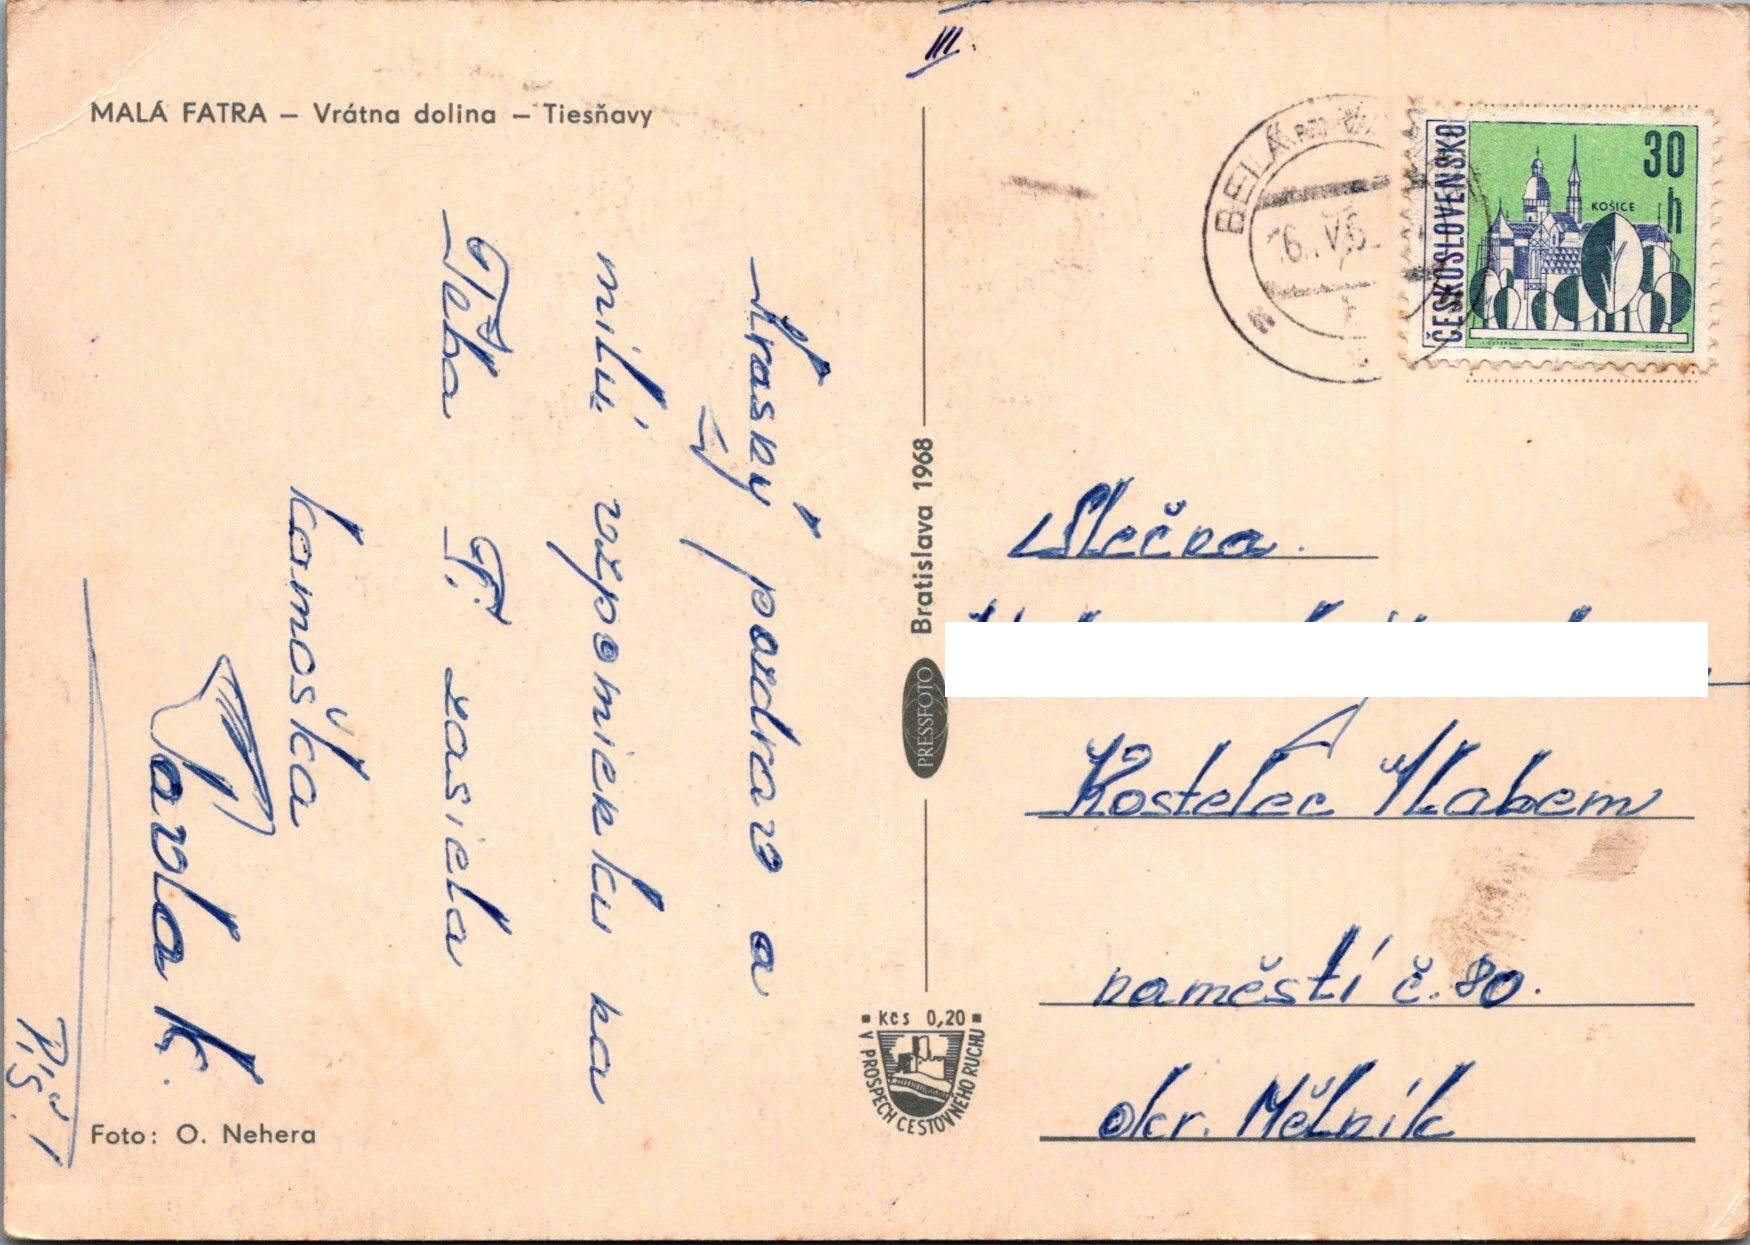 III.
MALÁ FATRA – Vrátna dolina – Tiesňavy
Krásný pozdrav a
milú vzpomienku na
Teba Ti zasiela
kamoška
Pavla K.
Piš!
Foto: O. Nehera
Bratislava 1968
PRESSFOTO
Kčs 0,20
V PROSPECH CESTOVNÉHO RUCHU
BELÁ
ČESKOSLOVENSKO
30
h
KOŠICE
Slečna
Kostelec n/Labem
naměstí č. 80.
okr. Mělník